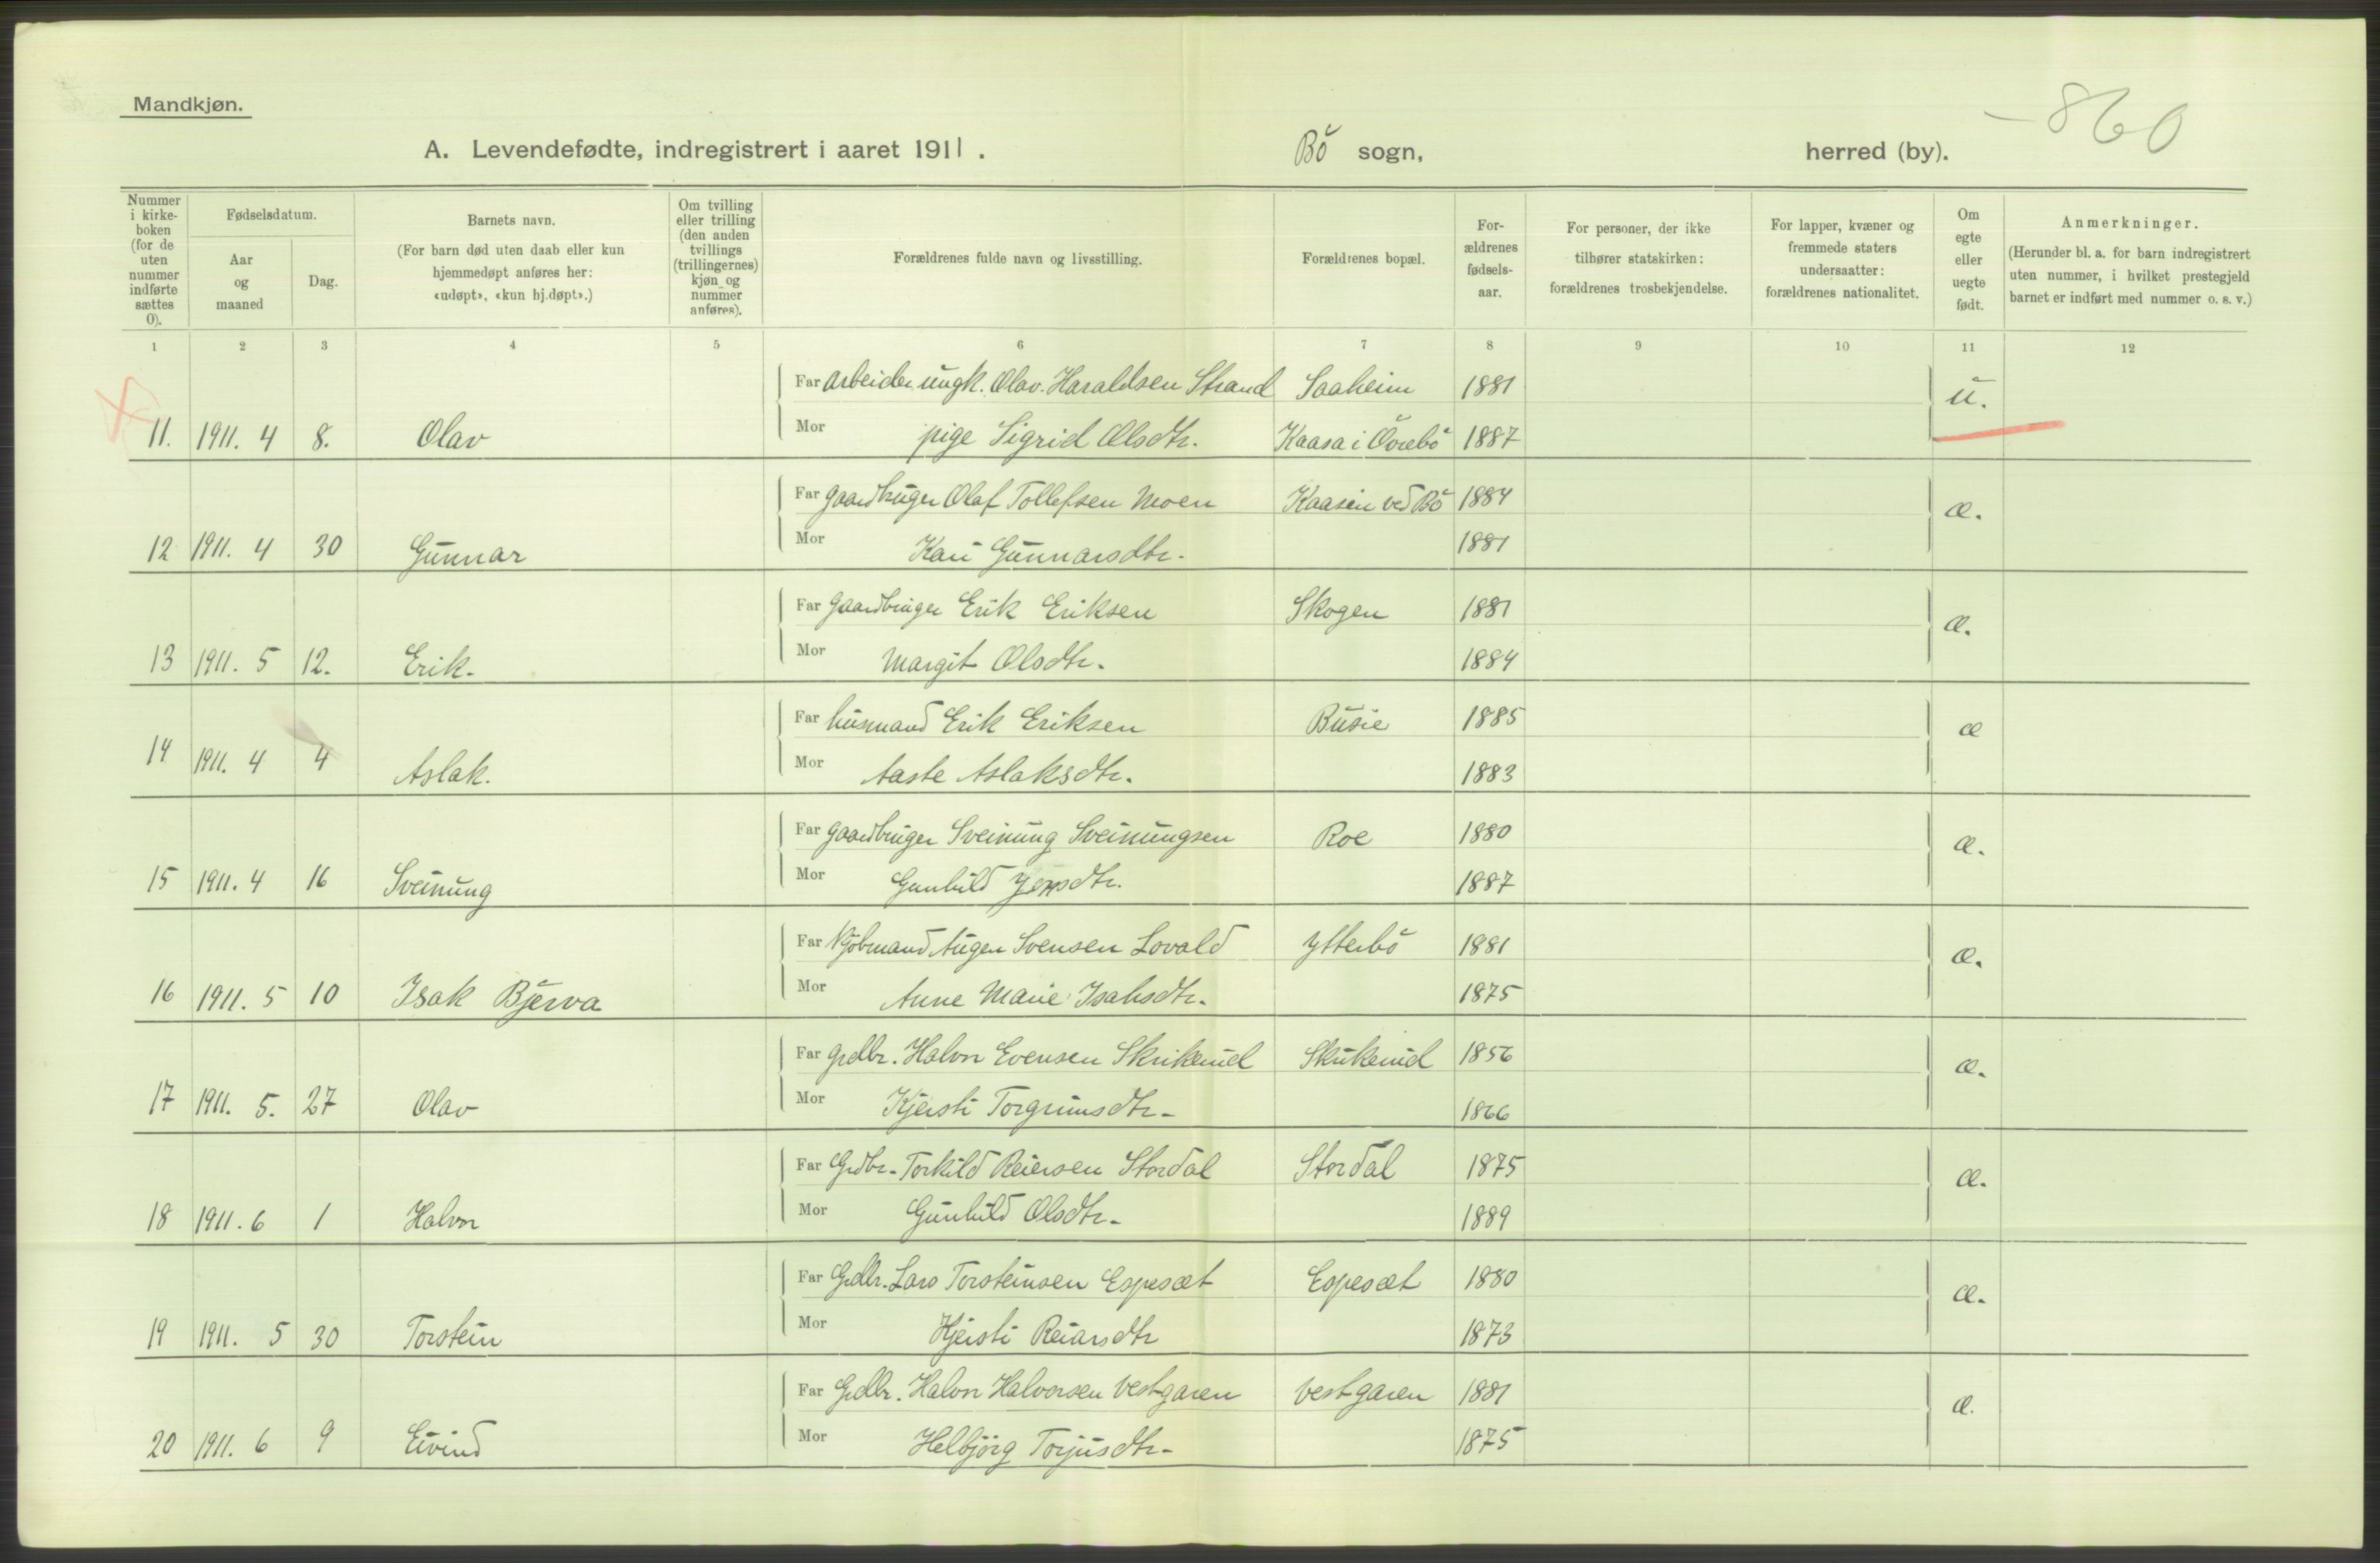 Mandkjøn.
A. Levendefødte, indregistrert i aaret 1911. Bö sogn, herred (by). – 860
Nummer i kirke-boken (for de uten nummer indførte sættes 0).
Fødselsdatum.
Aar og maaned
Dag.
Barnets navn.
(For barn død uten daab eller kun hjemmedøpt anføres her: «udøpt», «kun hj.døpt».)
Om tvilling eller trilling (den anden tvillings (trillingernes) kjøn og nummer anføres).
Forældrenes fulde navn og livsstilling.
Forældrenes bopæl.
For-ældrenes fødsels-aar.
For personer, der ikke tilhører statskirken: forældrenes trosbekjendelse.
For lapper, kvæner og fremmede staters undersaatter: forældrenes nationalitet.
Om egte eller uegte født.
Anmerkninger.
(Herunder bl. a. for barn indregistrert uten nummer, i hvilket prestegjeld barnet er indført med nummer o. s. v.)
1 2 3 4 5 6 7 8 9 10 11 12
Far arbeider ungk. Olav Haraldsen Strand Saaheim 1881 u.
11. 1911. 4 8. Olav Mor pige Sigrid Olsdtr. Kaasa i Övrebö 1887
Far gaardbruger Olaf Tollefsen Moen Kaasin ved Bö 1884 æ.
12 1911. 4 30 Gunnar Mor Kari Gunnarsdtr. 1881
Far gaardbruger Erik Eriksen Skogen 1881 æ.
13 1911. 5 12. Erik. Mor Margit Olsdtr. 1884
Far husmand Erik Eriksen Busie 1885 æ
14 1911. 4 4 Aslak. Mor Aaste Aslaksdtr. 1883
Far gaardbruger Sveinung Sveinungsen Roe 1880 æ.
15 1911. 4 16 Sveinung Mor Gunhild 1887
Far Kjöbmand Augen Svensen Lovald Ytterbö 1881 æ.
16 1911. 5 10 Isak Bjerva Mor Anne Marie Isaksdtr. 1875
Far grdbr. Halvor Evensen Skrikerud Skrikerud 1856 æ.
17 1911. 5. 27 Olav Mor Kjersti Torgrimsdtr. 1866
Far Grdbr. Torkild Reiersen Stordal Stordal 1875 æ.
18 1911. 6 1 Halvor Mor Gunhild Olsdtr. 1889
Far Grdbr. Lars Torsteinsen Espesæt Espesæt 1880 æ.
19 1911. 5 30 Torstein Mor Kjersti Reiarsdtr 1873
Far Grdbr. Halvor Halvorsen Vestgaren Vestgaren 1881 æ.
20 1911. 6 9 Eivind Mor Helbjörg Torjusdtr. 1875